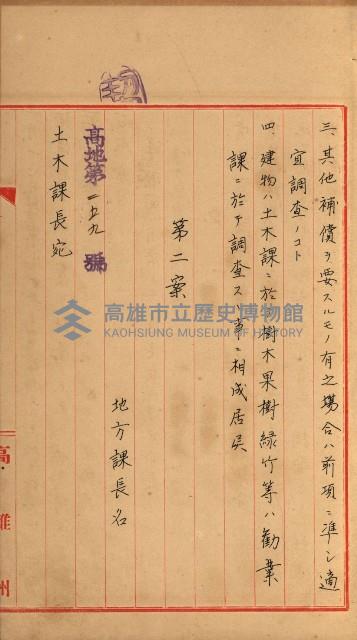 三、其他補償ヲ要スルモノ有之場合ハ前項ニ準シ適
宜調査ノコト
四、建物ハ土木課ニ於テ樹木果樹緑竹等ハ勧業
課ニ於テ調査スル事ニ相成居候
第二案
地方課長名
高地第一五九號
土木課長宛
高雄州
高雄市立歷史博物館
KAOHSIUNG MUSEUM OF HISTORY